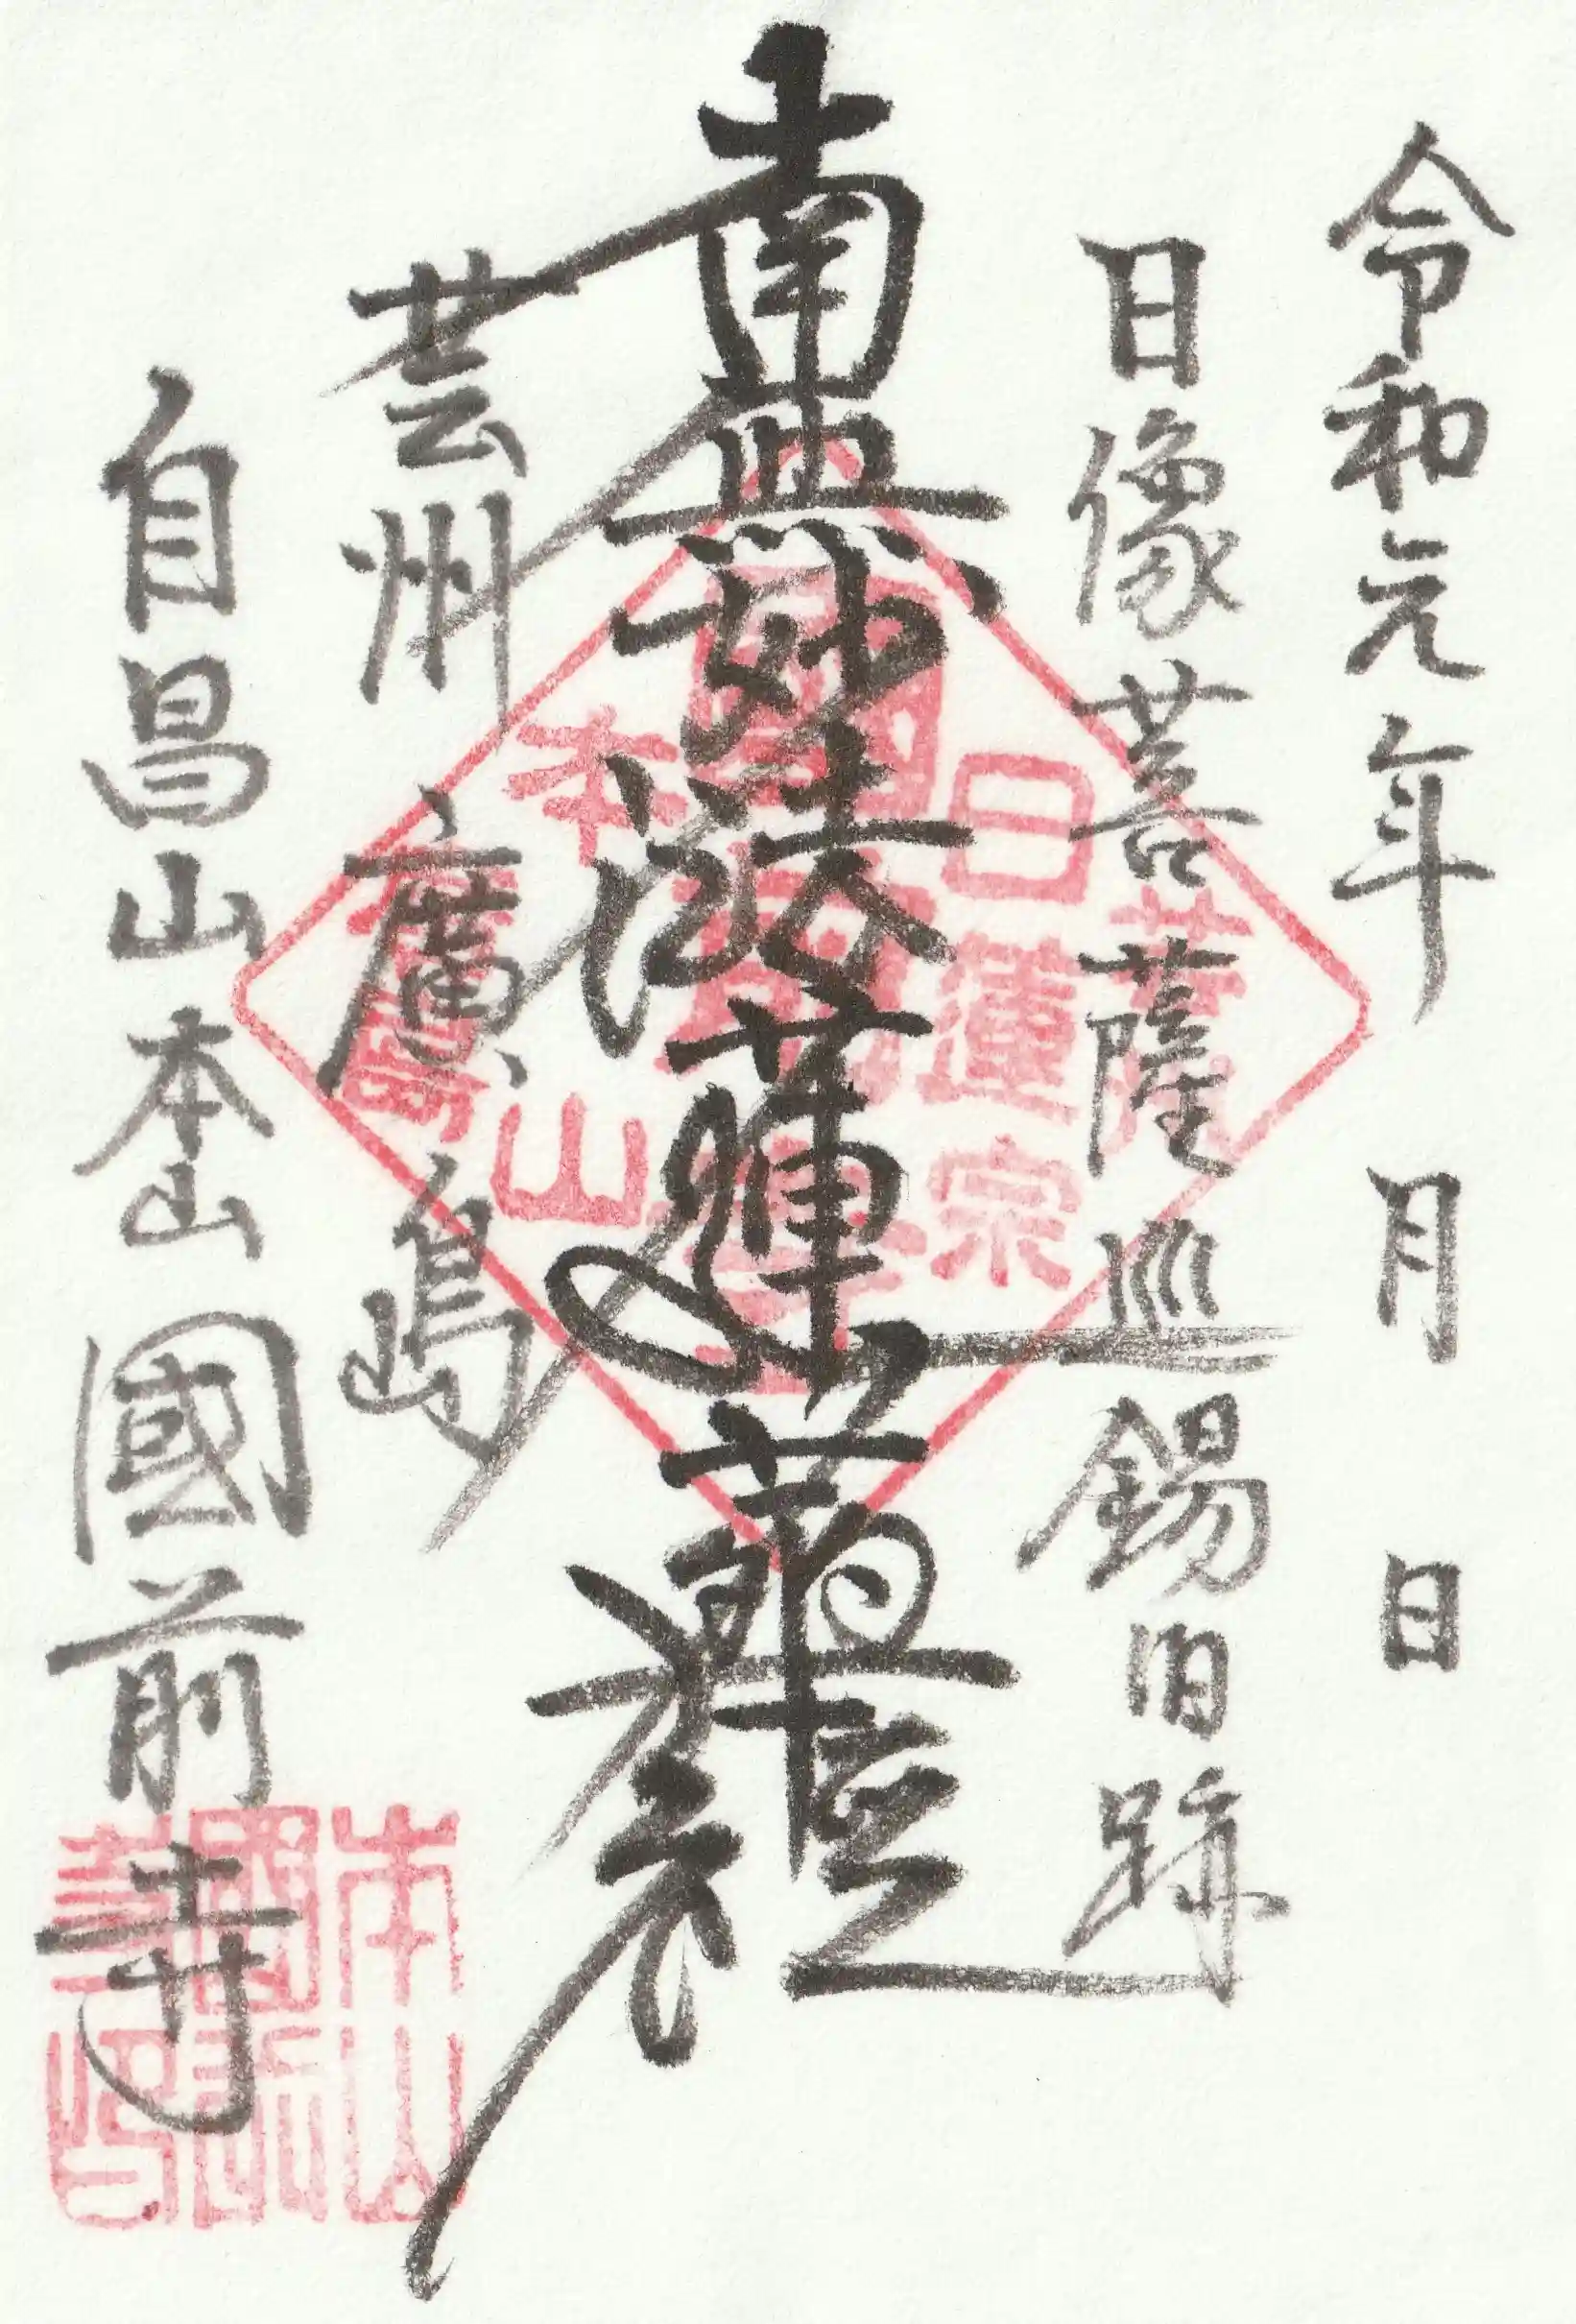 令和元年 月 日
日像菩薩巡錫旧跡
南無妙法蓮華経
芸州 廣島
自昌山本山國前寺
日蓮宗
國前寺
本山
廣島
本山
國前
寺印